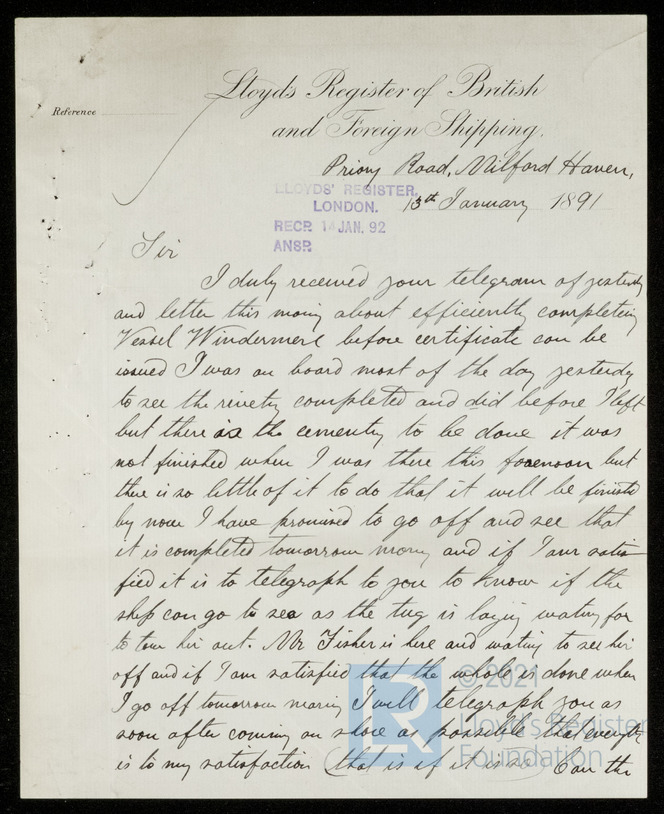 Lloyd's Register of British
and Foreign Shipping.
Reference
Priory Road, Milford Haven,
13th January 1891
LLOYDS' REGISTER,
LONDON.
RECD. 14 JAN. 92
ANSD.
Sir
I duly received your telegram of yesterdy
and letter this morng about efficiently completing
Vessel Windermere before certificate can be
issued I was on board most of the day yesterday
to see the rivetg completed and did before I left
but there is the cementg to be done it was
not finished when I was there this forenoon but
there is so little of it to do that it will be finishd
by now I have promised to go off and see that
it is completed tomorrow morng and if I am satis
fied it is to telegraph to you to know if the
ship can go to sea as the tug is laying waiting for
to tow hir out. Mr Fisher is here and waitng to see hir
off and if I am satisfied that the whole is done when
I go off tomorrow morng I will telegraph you as
soon after coming on shore as possible that everyth
is to my satisfaction (that is if it is so) Can the
© 2021
Lloyd's Register
Foundation
LR